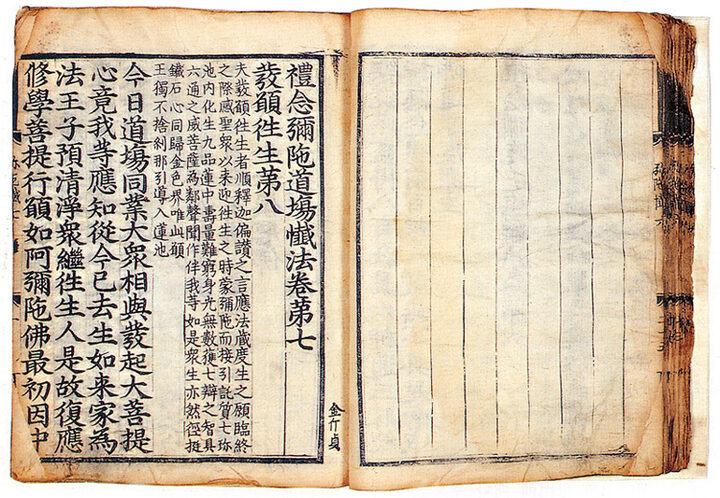 禮念彌陁道塲懴法卷第七
發願徃生第八
夫發願徃生者順釋迦徧讃之言應法藏度生之願臨終
之際感聖衆以来迎徃生之時蒙彌陁而接引託質七珎
池内化生九品蓮中壽量難窮身光無數獲七辯之智具
六通之威菩薩為鄰聲聞作伴我等如是衆生亦然徑挺
鐵石心同歸金色界唯此願
王獨不捨刹那引導入蓮池
今日道塲同業大衆相與發起大菩提
心竟我等應知從今已去生如来家為
法王子預清淨衆繼徃生人是故復應
修學菩提行願如阿彌陁佛最初因中